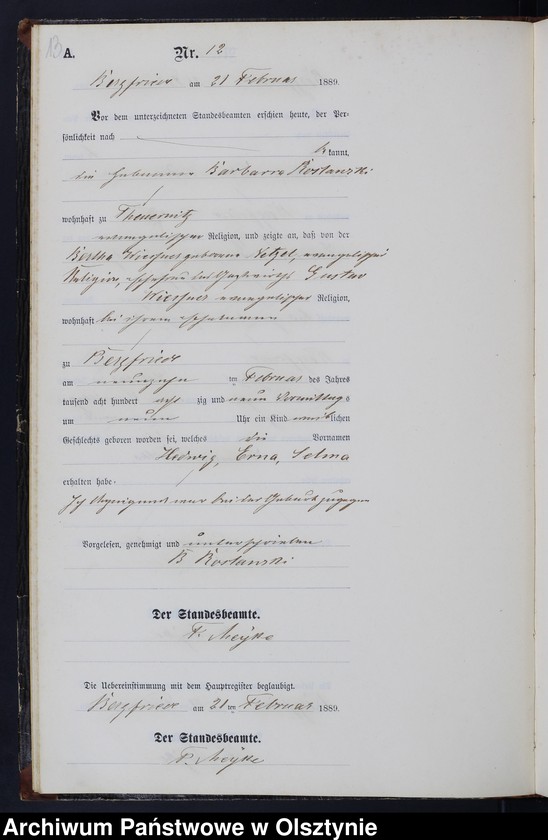 13
A.
Nr. 12
Bergfriede am 21 Februar 1889.
Vor dem unterzeichneten Standesbeamten erschien heute, der Per-
sönlichkeit nach
be kannt,
die Hebamme Barbara Kostanski
wohnhaft zu Theuernitz
evangelischer Religion, und zeigte an, daß von der
Bertha geborene evangelischer
Religion, Ehefrau des Gastwirths Gustav
evangelischer Religion,
wohnhaft bei ihrem Ehemanne
zu Bergfriede
am neunzehn ten Februar des Jahres
tausend acht hundert acht zig und neun Vormittags
um neun Uhr ein Kind weib lichen
Geschlechts geboren worden sei, welches die Vornamen
Hedwig, Erna, Selma
erhalten habe.
bei der Geburt zugegen
Vorgelesen, genehmigt und unterschrieben
B Kostanski
Der Standesbeamte.
Die Uebereinstimmung mit dem Hauptregister beglaubigt.
Bergfriede am 21 ten Februar 1889.
Der Standesbeamte.
Archiwum Państwowe w Olsztynie